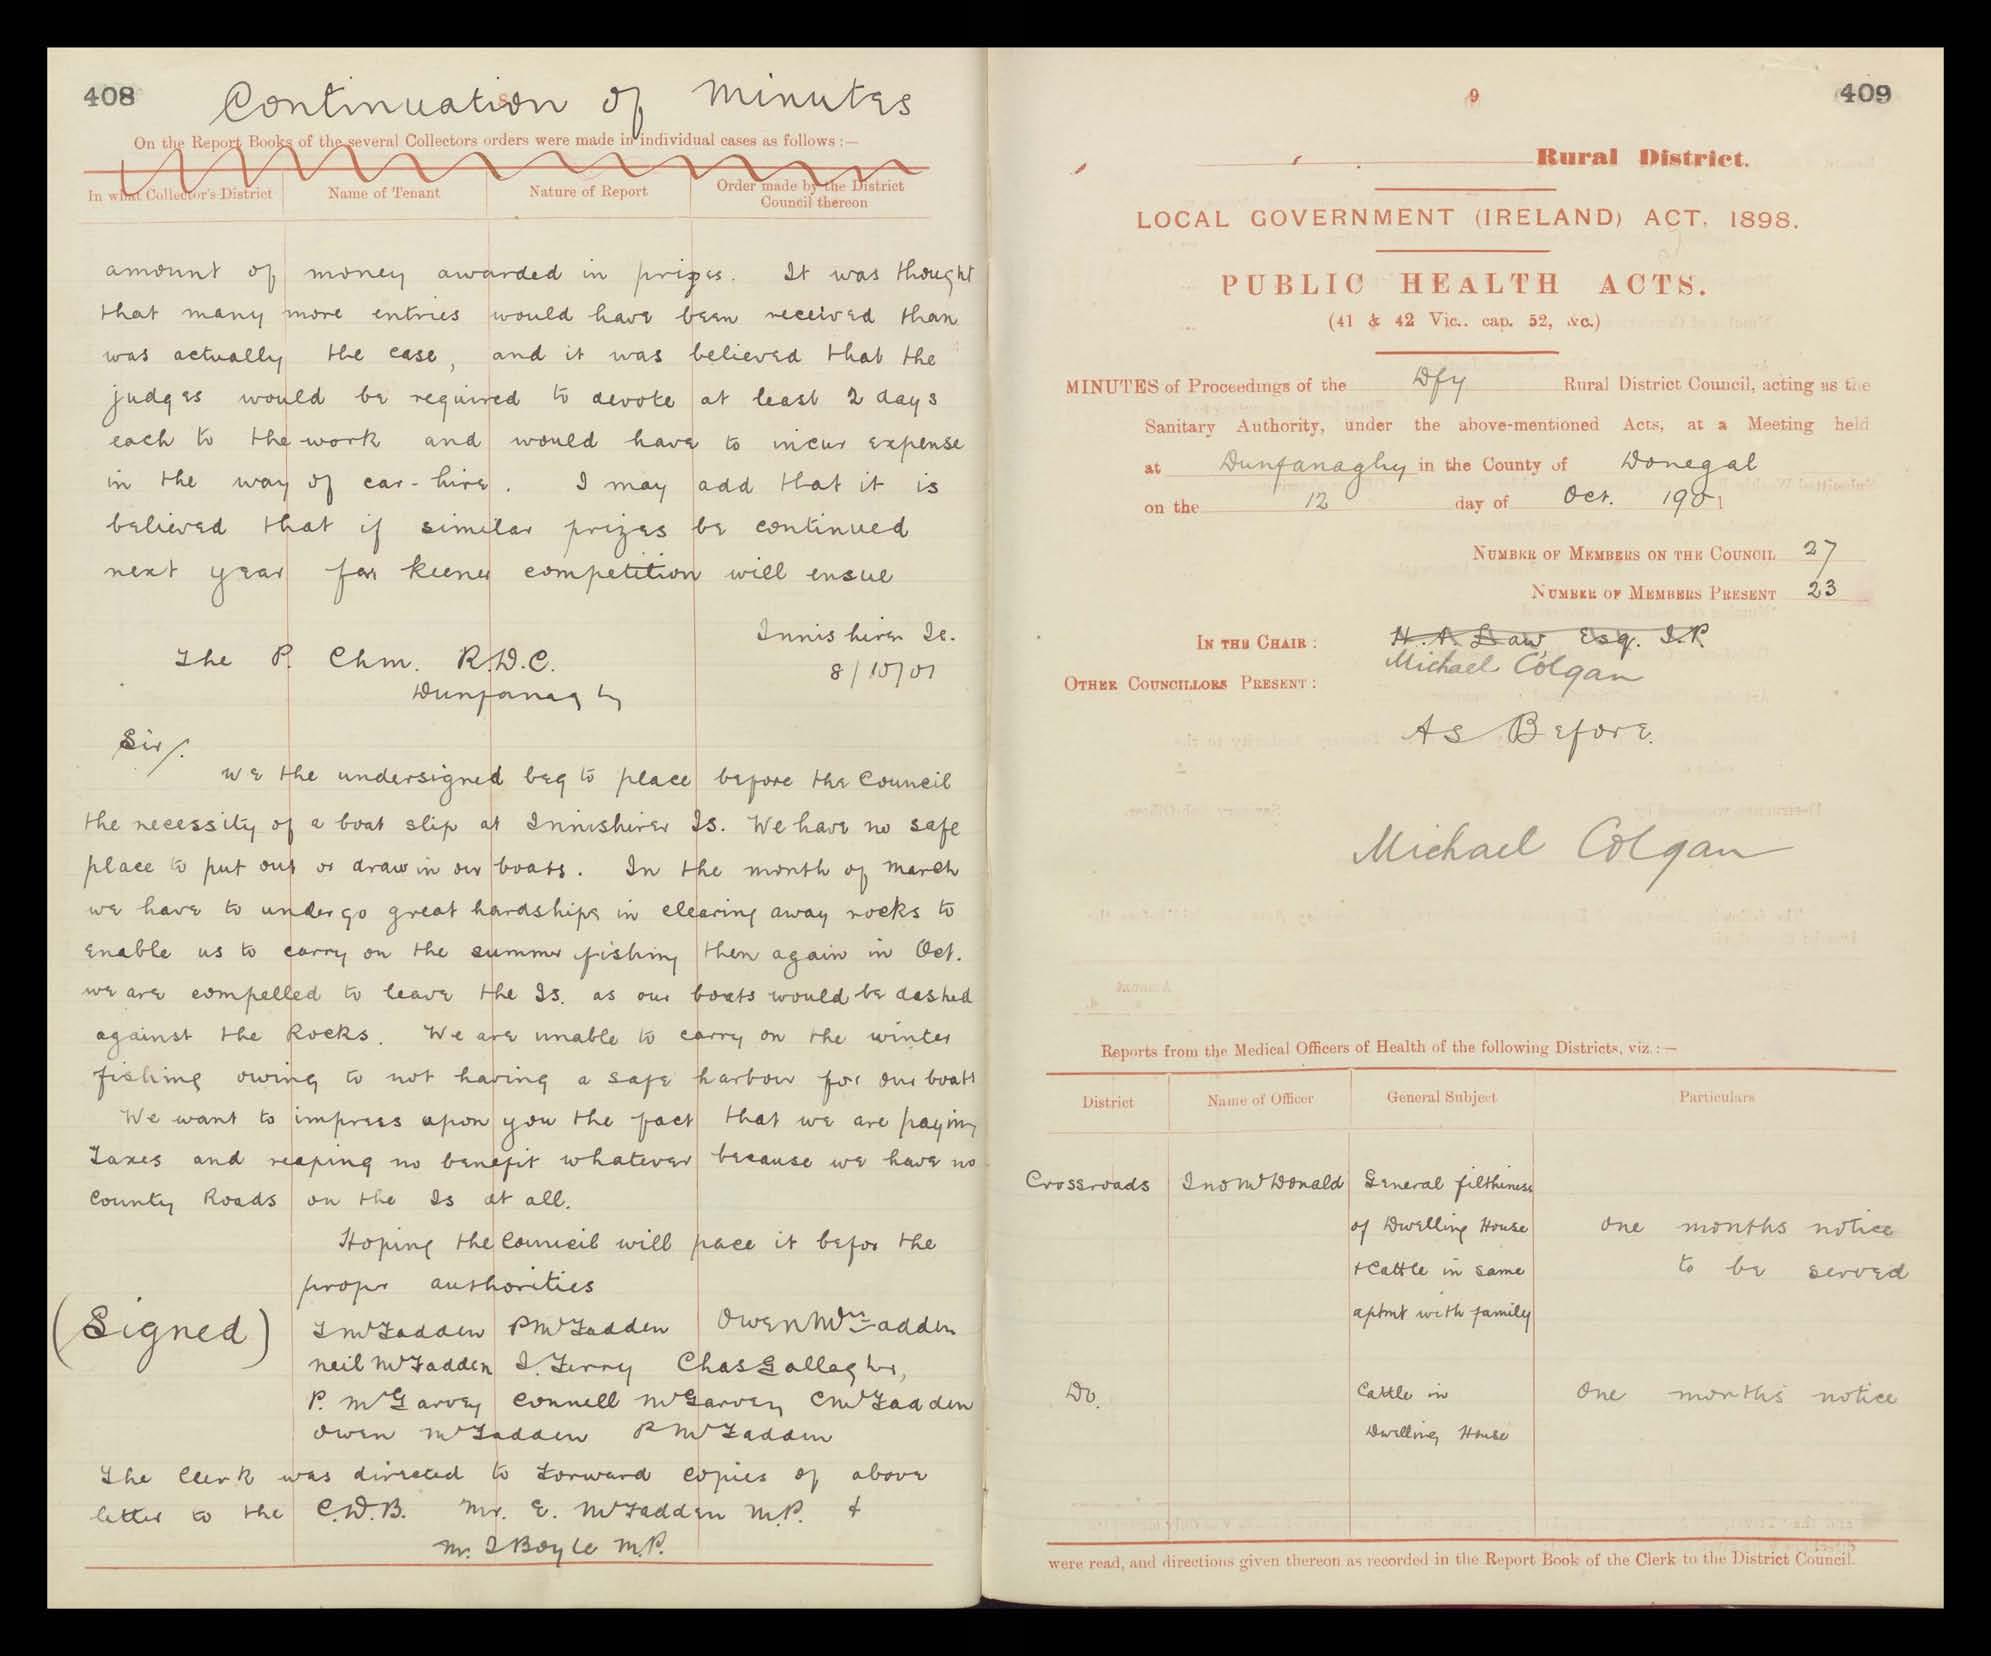 408
Continuation of Minutes
On the Report Books of the several Collectors orders were made in individual cases as follows :—
In what Collector's District
Name of Tenant
Nature of Report
Order made by the District Council thereon
amount of money awarded in prizes. It was thought
that many more entries would have been received than
was actually the case, and it was believed that the
judges would be required to devote at least 2 days
each to the work and would have to incur expense
in the way of car-hire. I may add that it is
believed that if similar prizes be continued
next year far keener competition will ensue
Innishirer Is.
8/10/01
The P. Chm. R.D.C.
Dunfanaghy
Sir/.
We the undersigned beg to place before the Council
the necessity of a boat slip at Innishirer Is. We have no safe
place to put out or draw in our boats. In the month of March
we have to undergo great hardships in clearing away rocks to
enable us to carry on the summer fishing then again in Oct.
we are compelled to leave the Is. as our boats would be dashed
against the Rocks. We are unable to carry on the winter
fishing owing to not having a safe harbour for our boats
We want to impress upon you the fact that we are paying
Taxes and reaping no benefit whatever because we have no
County Roads on the Is at all.
Hoping the Council will pace it befor the
propr authorities
(Signed)
J McFadden P McFadden Owen McFadden
Neil McFadden J. Ferry Chas Gallagher,
P. McGarvey Connell McGarvey C McFadden
Owen McFadden P McFadden
The Clerk was directed to forward copies of above
letter to the C.D.B. Mr. E. McFadden M.P. &
Mr. J Boyle M.P.
9
409
Rural District.
LOCAL GOVERNMENT (IRELAND) ACT, 1898.
PUBLIC HEALTH ACTS.
(41 & 42 Vic.. cap. 52, &c.)
MINUTES of Proceedings of the Dfy Rural District Council, acting as the
Sanitary Authority, under the above-mentioned Acts, at a Meeting held
at Dunfanaghy in the County of Donegal
on the 12 day of Oct. 1901
NUMBER OF MEMBERS ON THE COUNCIL 27
NUMBER OF MEMBERS PRESENT 23
IN THE CHAIR : H. A Law, Esq. J.P.
Michael Colgan
OTHER COUNCILLORS PRESENT :
As Before.
Michael Colgan
Reports from the Medical Officers of Health of the following Districts, viz. :—
District
Name of Officer
General Subject
Particulars
Crossroads Jno McDonald General filthiness
of Dwelling House one months notice
+ Cattle in same to be served
aptmt with family
Do. Cattle in one months notice
Dwelling House
were read, and directions given thereon as recorded in the Report Book of the Clerk to the District Council.